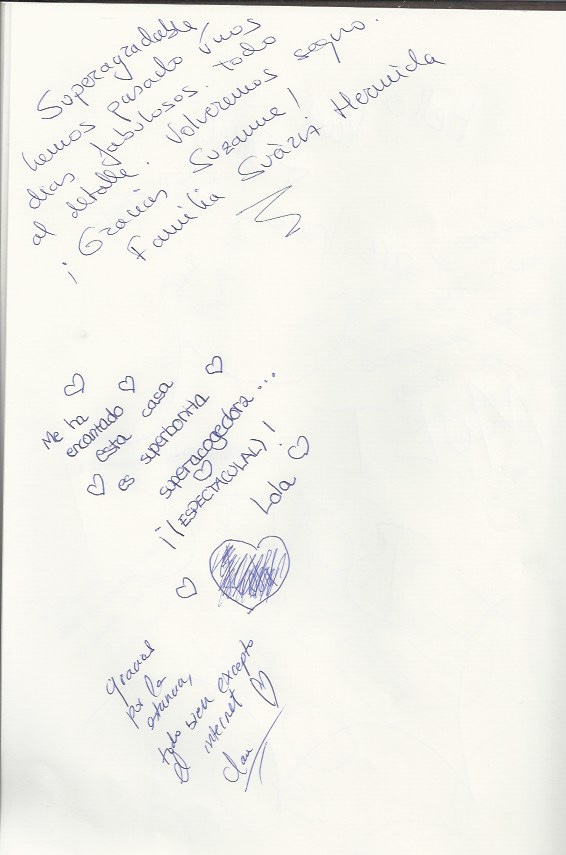 Superagradable,
hemos pasado unos
dias fabulosos. todo
al detalle. Volveremos segro.
¡Gracias Suzanne!
Familia Suárez Hermida
Me ha
encantado
esta casa
es superbonita
superacogedora...
¡¡(ESPECTACULAL)!
Lola
gracias
por la
estancia,
todo bien excepto
internet